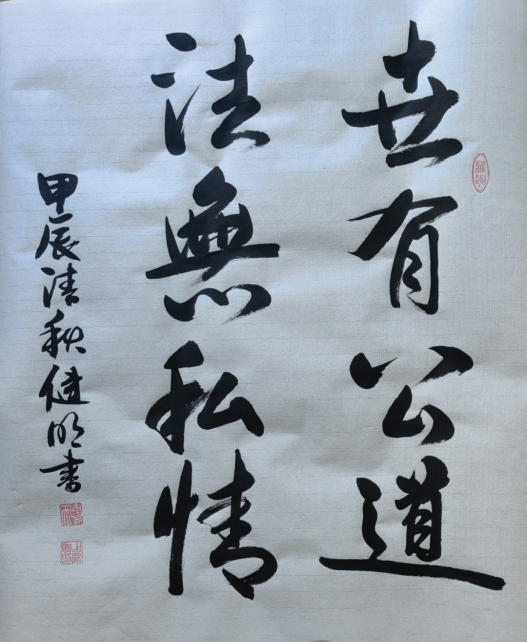 世有公道
法無私情
甲辰清秋健明書